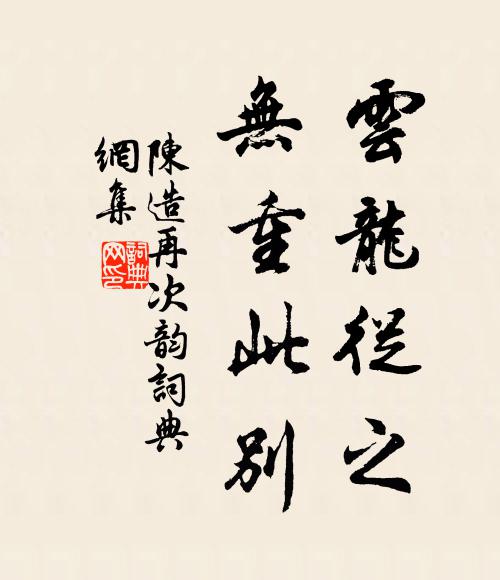 雲龍從之
無重此別
陳造再次韵詞典
網集
詞典
网印